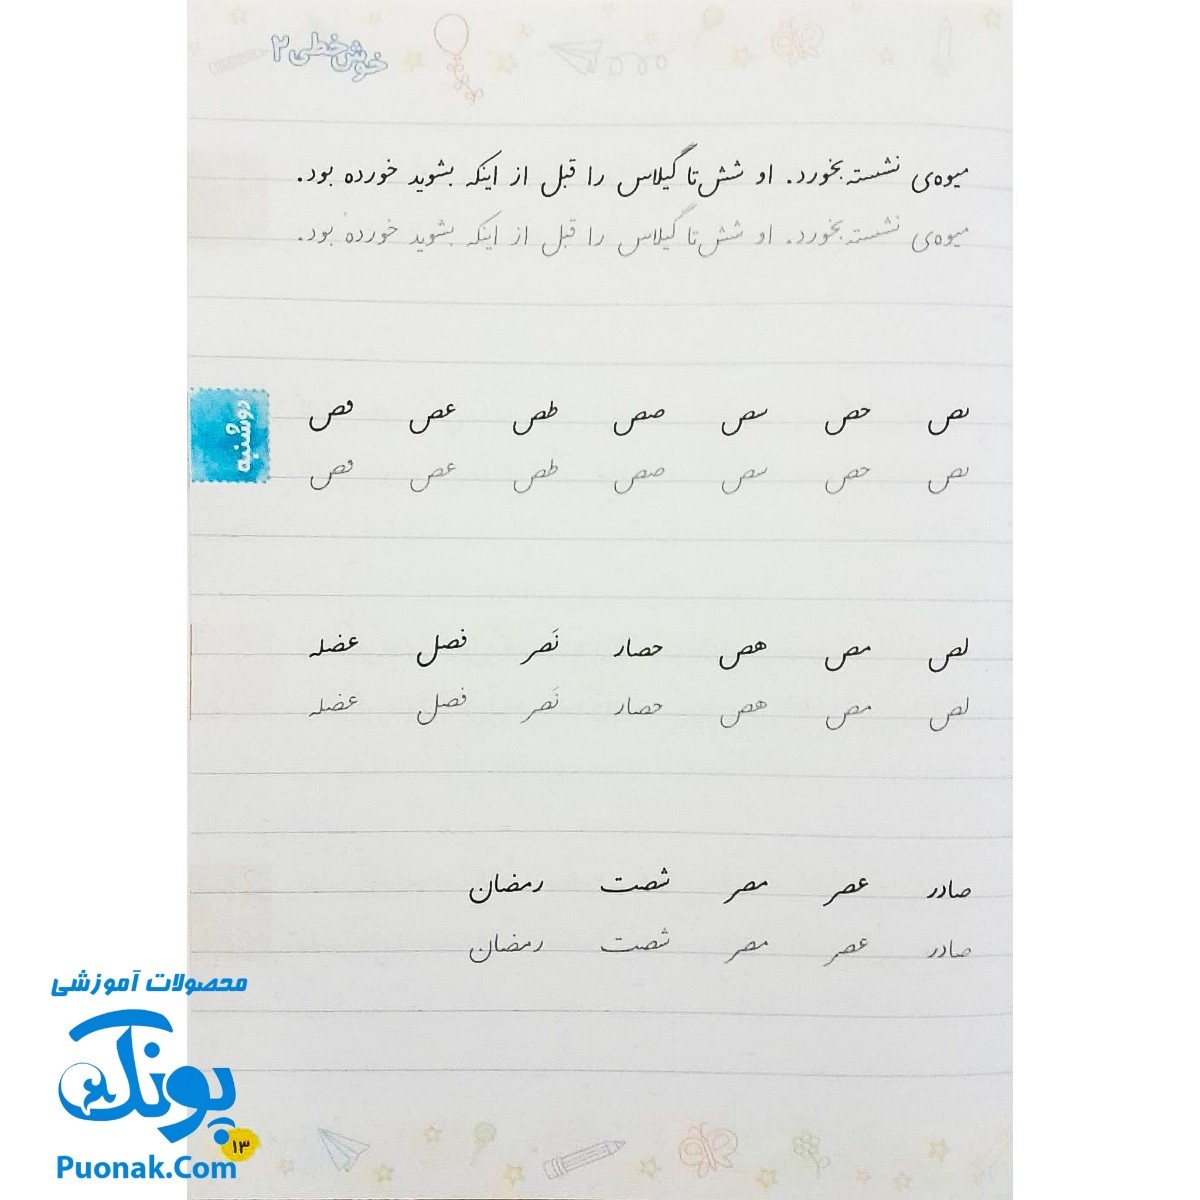 خوش‌خطی ۲
میوه‌ی نشسته بخورد. او شش تا گیلاس را قبل از اینکه بشوید خورده بود.
میوه‌ی نشسته بخورد. او شش تا گیلاس را قبل از اینکه بشوید خورده بود.
دوشنبه
ىص حص سص صص طص عص ڡص
ىص حص سص صص طص عص ڡص
لص مص هص حصار نَصر فصل عضله
لص مص هص حصار نَصر فصل عضله
صادر عصر مصر شصت رمضان
صادر عصر مصر شصت رمضان
محصولات آموزشی
پونک
۱۳
Puonak.Com